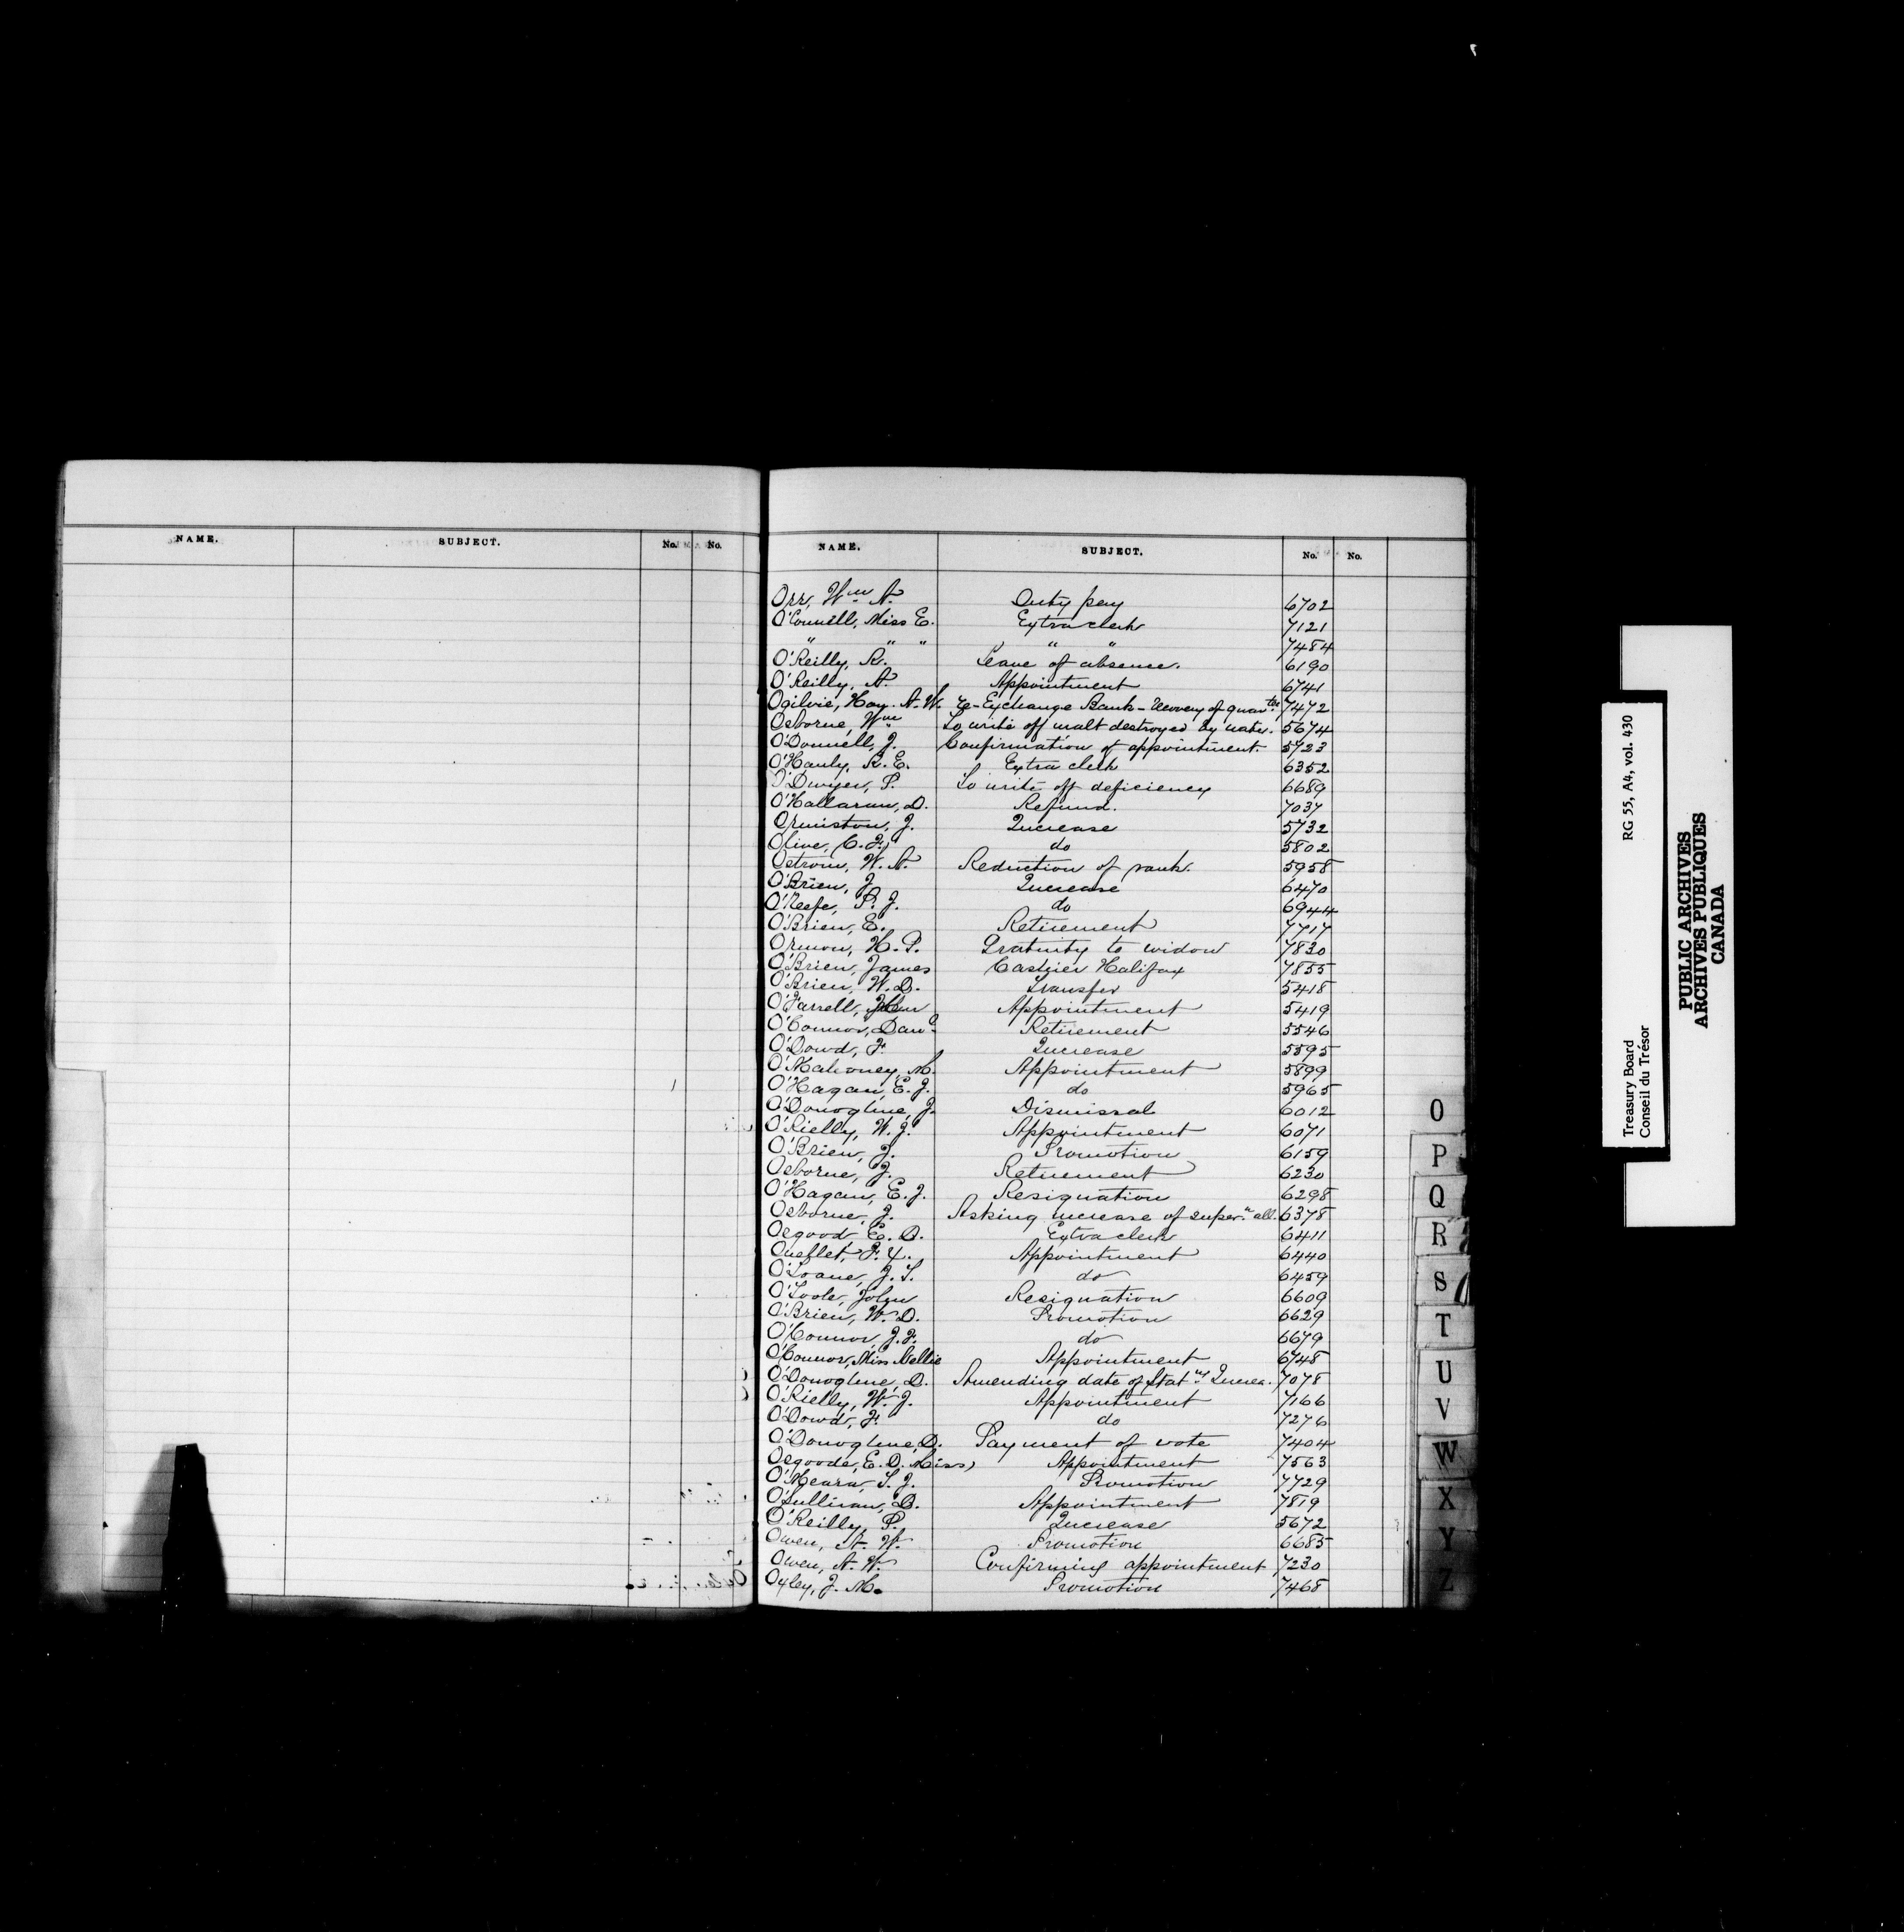 NAME. SUBJECT. No. No.
NAME. SUBJECT. No. No.
Orr, Wm A. Duty pay 6702
O'Connell, Miss E. Extra clerk 7121
" " " " " 7484
O'Reilly, R. Leave of absence. 6190
O'Reilly, A. Appointment 6741
Ogilvie, Hay. A. W. re-Exchange Bank - recovery of guar tee 7472
Osborne, Wm To write off malt destroyed by water. 5674
O'Donnell, J. Confirmation of appointment. 5723
O'Hanly, R. E. Extra clerk 6352
O'Dwyer, P. To write off deficiency 6689
O'Hallaran, D. Refund. 7037
Ormiston, J. Increase 5732
Olive, C. F. do 5802
Ostrom, W. A. Reduction of rank. 5958
O'Brien, J. Increase 6470
O'Keefe, P. J. do 6944
O'Brien, E. Retirement 7717
Ormon, H. P. Gratuity to widow 7830
O'Brien, James Cashier Halifax 7855
O'Brien, W. D. Transfer 5418
O'Farrell, John Appointment 5419
O'Connor, Danl Retirement 5546
O'Dowd, F. Increase 5595
O'Mahoney, M. Appointment 5899
O'Hagan, E. J. do 5965
O'Donoghue, J. Dismissal 6012
O'Rielly, W. J. Appointment 6071
O'Brien, J. Promotion 6159
Osborne, J. Retirement 6230
O'Hagan, E. J. Resignation 6298
Osborne, J. Asking increase of super.n all. 6378
Osgood E. D. Extra clerk 6411
Ouellet, F. Y. Appointment 6440
O'Loane, J. S. do 6459
O'Toole, John Resignation 6609
O'Brien, W. D. Promotion 6629
O'Connor, J. F. do 6679
O'Connor, Miss Nellie Appointment 6748
O'Donoghue, D. Amending date of Stat ry Increa. 7078
O'Rielly, W. J. Appointment 7166
O'Dowd, F. do 7276
O'Donoghue, D. Payment of vote 7404
Osgoode, E. D. Miss) Appointment 7563
O'Meara, T. J. Promotion 7729
O'Sullivan, D. Appointment 7819
O'Reilly, P. Increase 5672
Owen, A. W. Promotion 6685
Owen, A. W. Confirming appointment 7230
Oxley, J. M. Promotion 7468
O
P
Q
R
S
T
U
V
W
X
Y
Z
Treasury Board RG 55, A4, vol. 430
Conseil du Trésor
PUBLIC ARCHIVES
ARCHIVES PUBLIQUES
CANADA